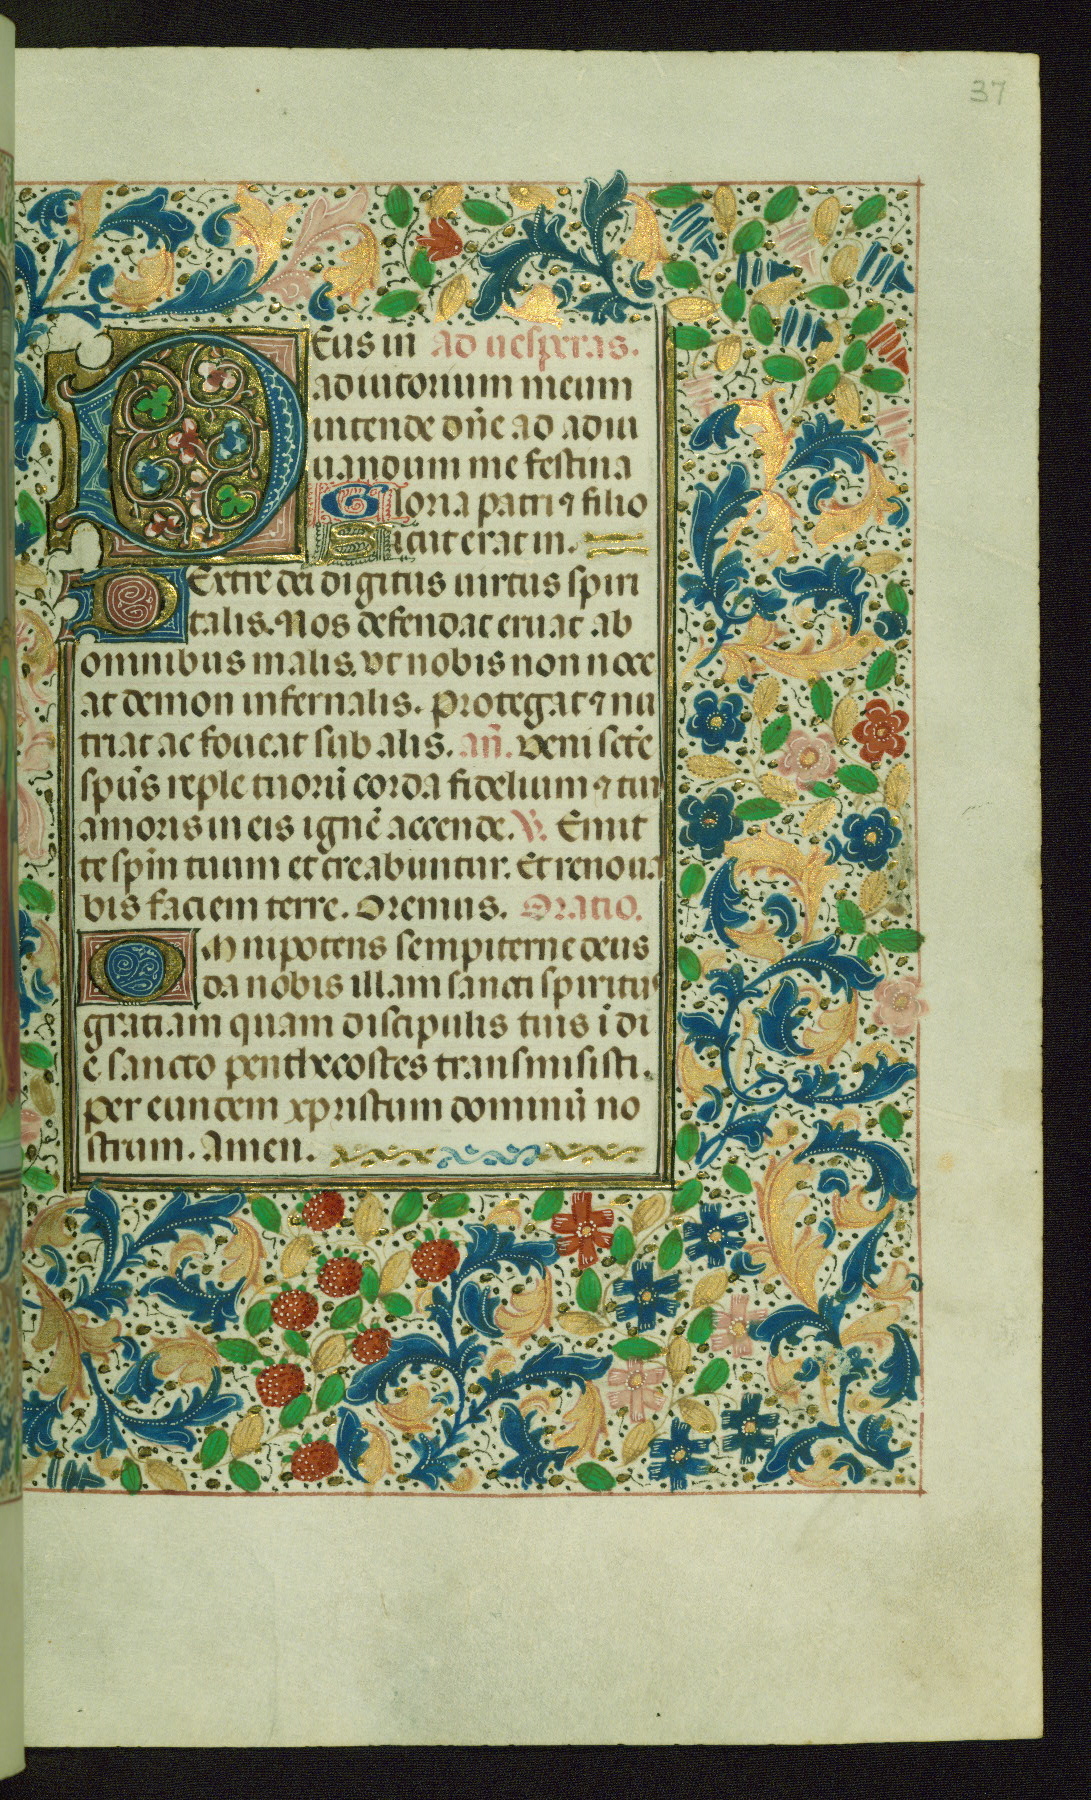 37
Deus in Ad uesperas.
adiutorium meum
intende dñe ad adiu
uandum me festina
Gloria patri ⁊ filio
Sicut erat in.
Dextre dei digitus uirtus spiri
talis. Nos defendat eruat ab
omnibus malis. vt nobis non noce
at demon infernalis. Protegat ⁊ nu
triat ac foueat sub alis. añ. Veni scẽ
spũs reple tuorũ corda fidelium ⁊ tui
amoris in eis ignẽ accende. ℣. Emit
te spm̃ tuum et creabuntur. Et renoua
bis faciem terre. Oremus. Oratio.
Omnipotens sempiterne deus
da nobis illam sancti spiritus
gratiam quam discipulis tuis ĩ di
e sancto penthecostes transmisisti.
per eundem xpristum dominũ no
strum. Amen.